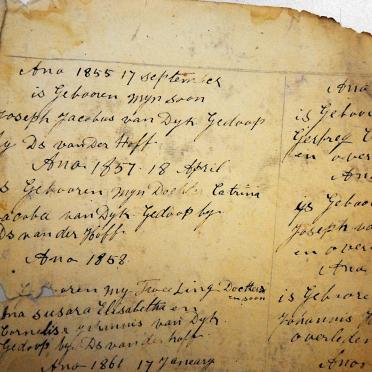 Ano 1855 17 september
is Gebooren Myn soon
Joseph Jacobus van Dyk Gedoop
by Ds van Der Hoff
Ano 1857 18 April
is Gebooren Myn Docht Catrina
Jacoba van Dyk Gedoop by
Ds van der Hoff
Ano 1858
Gebooren my Twee Ling Docther
en soon
Ana susara Elisabetha en
Cornelise van Dyk
Gedoop by Ds van der hoff
Ano 1861 17 January
Ano
is Geboo
en over
Ano
ys Geboo
Joseph va
en over
Ano
is Gebore
Johannis
overleden
Anor